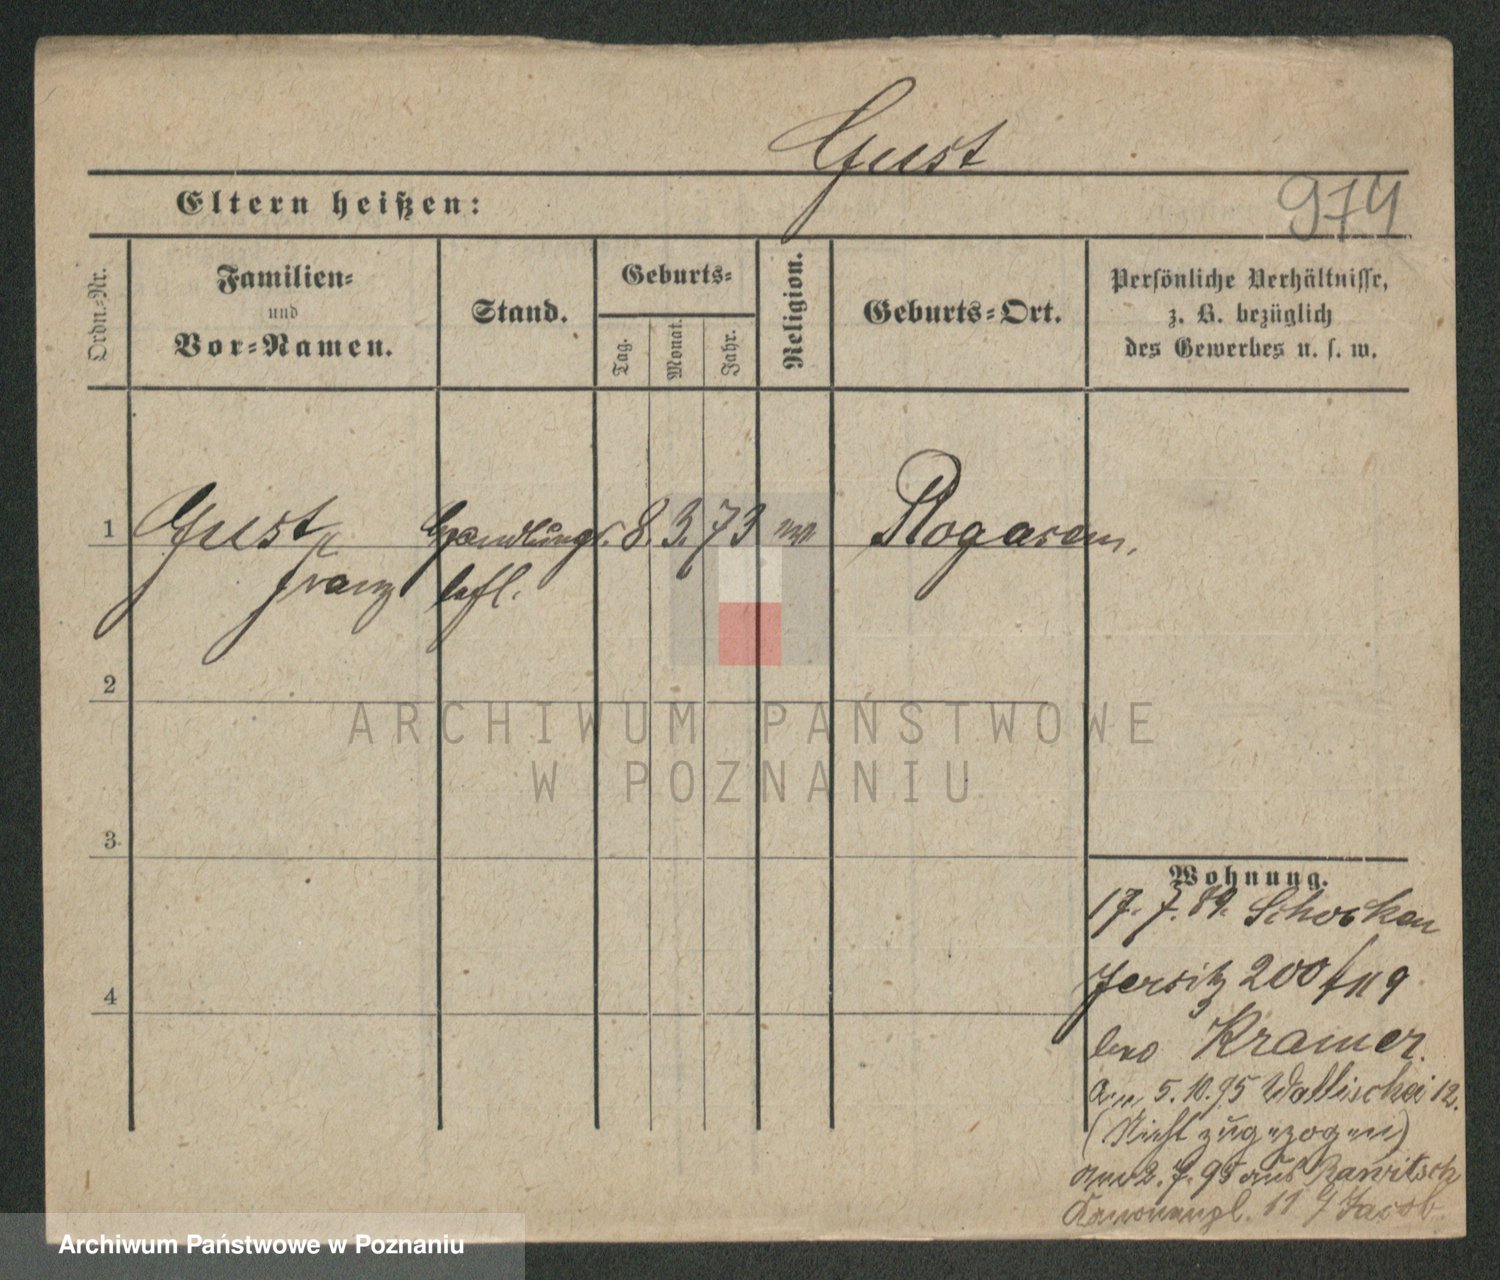 Gust
Eltern heißen:
974
Ordn.-Nr.
Familien-
und
Vor-Namen.
Stand.
Geburts-
Tag.
Monat.
Jahr.
Religion.
Geburts-Ort.
Persönliche Verhältnisse,
z. B. bezüglich
des Gewerbes u. s. w.
1 Gust Handlungs. 8. 3. 73 Rogasen,
Franz
2
ARCHIWUM PAŃSTWOWE
W POZNANIU
3
Wohnung.
17. 7. 89. Schokken
Jersitz 200
4
Kramer.
am 5. 10. 95 Wallischei 12.
(Nicht zugezogen)
2. 7. 95 aus Rawitsch
Kanonenpl. 11 Jacob
Archiwum Państwowe w Poznaniu